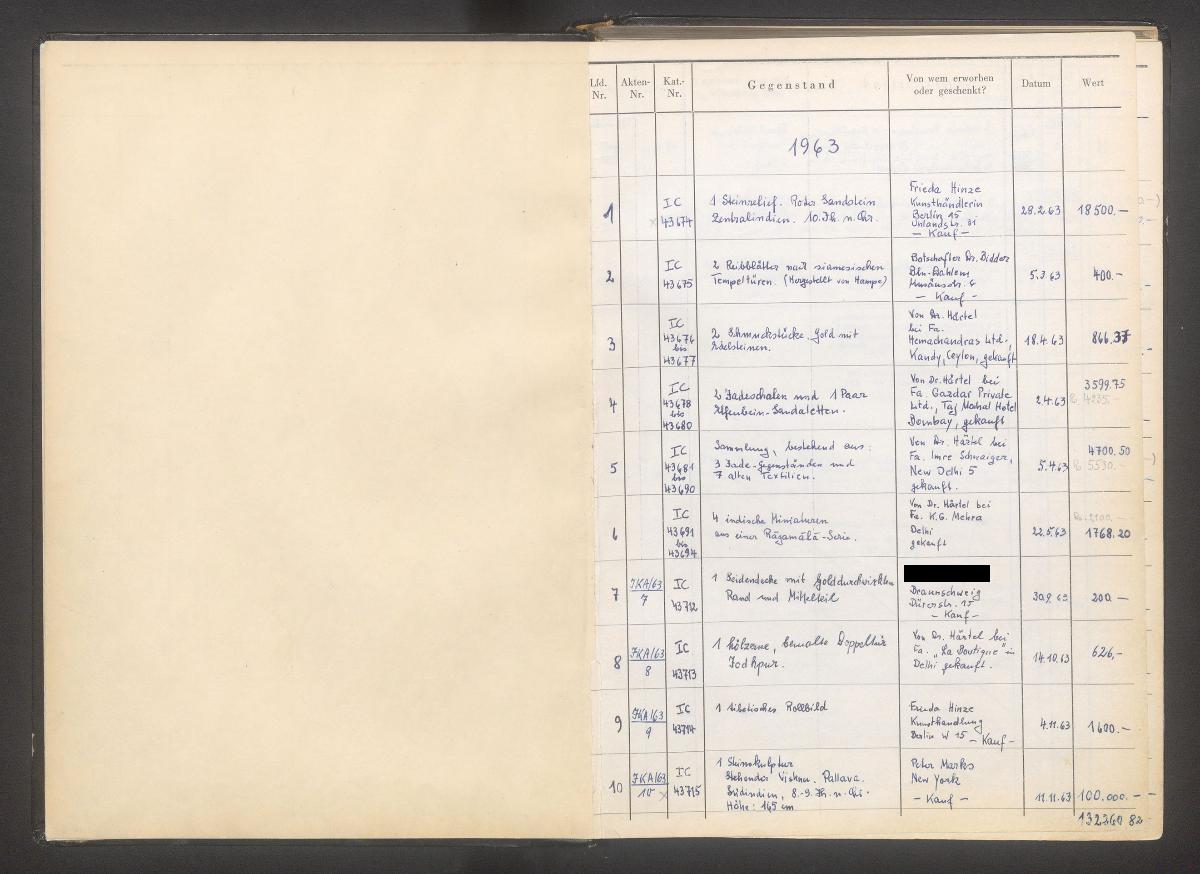 Lfd. Nr.
Akten- Nr.
Kat.- Nr.
Gegenstand
Von wem erworben oder geschenkt?
Datum
Wert
1963
1
IC
43674
1 Steinrelief. Roter Sandstein
Zentralindien. 10. Jh. n. Chr.
Frieda Hinze
Kunsthändlerin
Berlin 15
Uhlandstr. 31
— Kauf —
28.2.63
18500.—
2
IC
43675
2 Reibblätter nach siamesischen
Tempeltüren. (Hergestellt von Hampe)
Botschafter Dr. Bidder
Bln-Dahlem
Musäusstr. 6
— Kauf —
5.3.63
400.—
3
IC
43676
bis
43677
2 Schmuckstücke, Gold mit
Edelsteinen.
Von Dr. Härtel
bei Fa.
Hemachandras Ltd.,
Kandy, Ceylon, gekauft
18.4.63
866.37
4
IC
43678
bis
43680
2 Jadeschalen und 1 Paar
Elfenbein-Sandaletten.
Von Dr. Härtel bei
Fa. Gazdar Private
Ltd., Taj Mahal Hotel
Bombay, gekauft
2.4.63
3599.75
5
IC
43681
bis
43690
Sammlung, bestehend aus:
3 Jade-Gegenständen und
7 alten Textilien.
Von Dr. Härtel bei
Fa. Imre Schwaiger,
New Delhi 5
gekauft.
5.4.63
4700.50
Rs 5530.—
6
IC
43691
bis
43694
4 indische Miniaturen
aus einer Rāgamālā-Serie.
Von Dr. Härtel bei
Fa. K.G. Mehra
Delhi
gekauft
22.5.63
1768.20
7
JKA/63
7
IC
43712
1 Seidendecke mit Golddurchwirktem
Rand und Mittelteil
Braunschweig
Dürerstr. 15
— Kauf —
30.9.63
200.—
8
JKA/63
8
IC
43713
1 hölzerne, bemalte Doppeltür
Jodhpur.
Von Dr. Härtel bei
Fa. "La Boutique" in
Delhi gekauft.
14.10.63
626,-
9
JKA/63
9
IC
43714
1 tibetisches Rollbild
Frieda Hinze
Kunsthandlung
Berlin W 15 — Kauf —
4.11.63
1600.—
10
JKA/63
10
IC
43715
1 Steinskulptur
Stehender Vishnu. Pallava.
Südindien, 8.-9. Jh. n. Chr.
Höhe: 165 cm
Peter Marks
New York
— Kauf —
11.11.63
100.000.—
132260 82